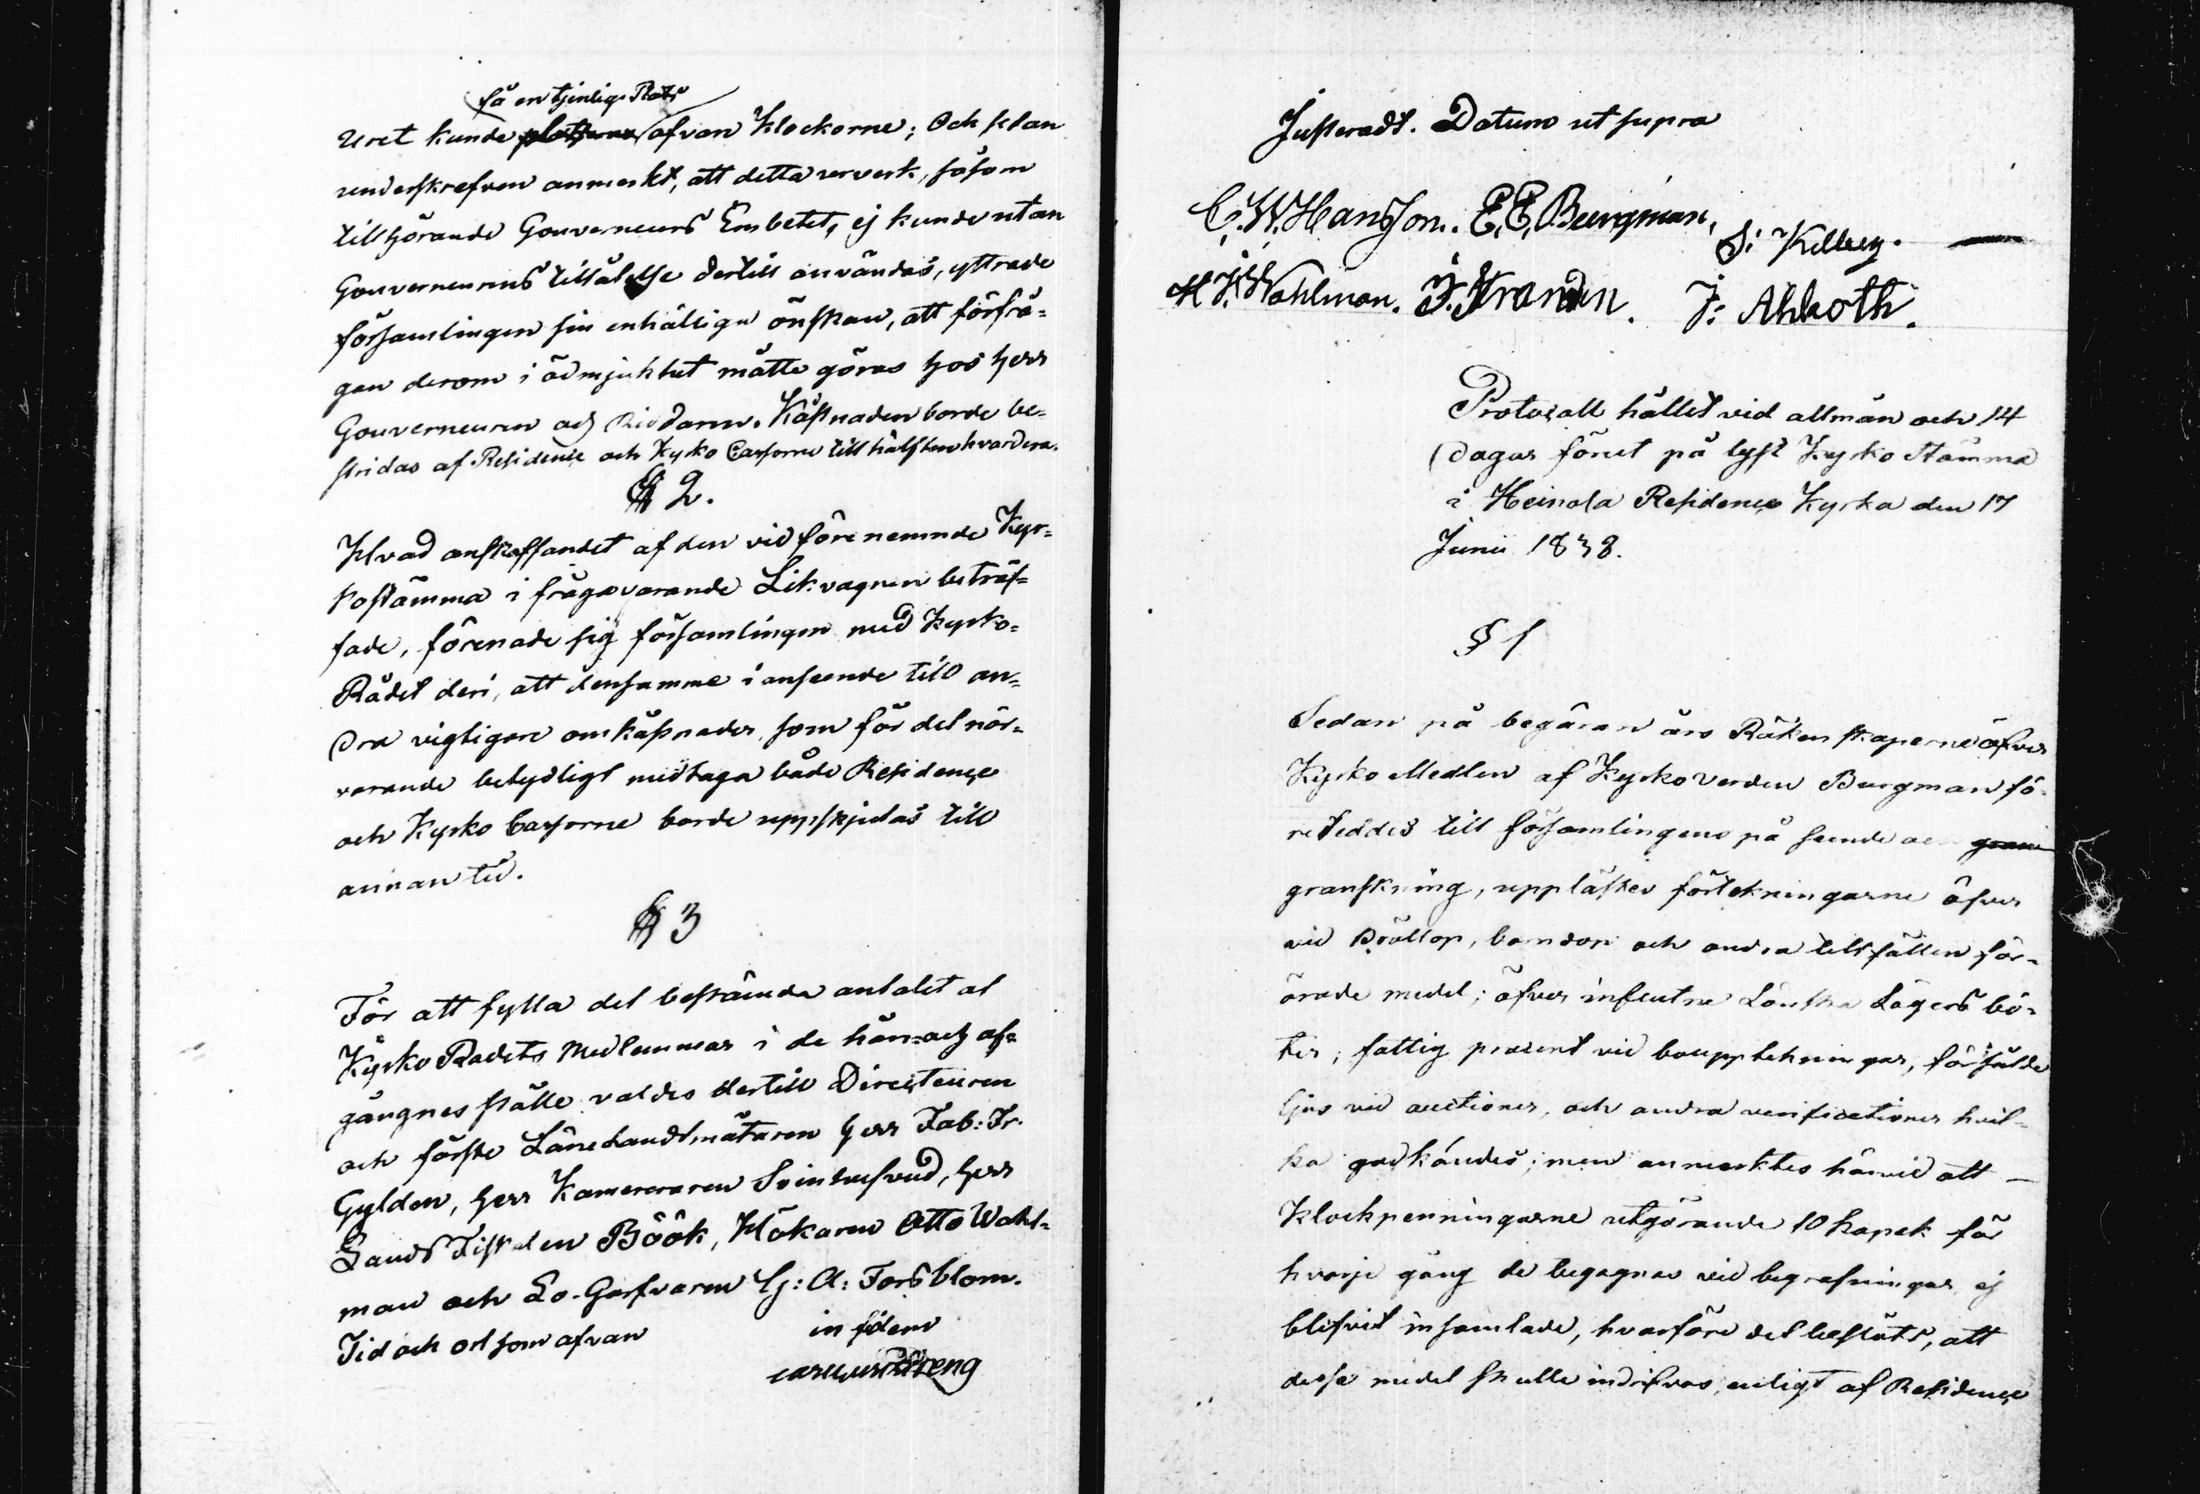 få en tjenlig Plats
Uret kunde platseras ofvan Klockorne; Och sedan
underskrefven anmerkt, att detta urverk, såsom
tillhörande Gouverneurs Embetet, ej kunde utan
Gouverneurens tillåtelse dertill användas, yttrade
församlingen sin enhälliga önskan, att förfrå-
gan derom i ödmjukhet måtte göras hos herr
Gouverneuren och Riddaren. Kåstnaden borde be-
stridas af Residence och Kyrko Cassorne till hälften hvardera.
§ 2.
Hvad anskaffandet af den vid förenemnde Kyr-
kostämma i frågavarande Likvagnen beträf-
fade, förenade sig församlingen med Kyrko-
Rådet deri, att densamme i anseende till an-
dra vigtigare omkåstnader, som för det när-
varande betydligt medtaga både Residence
och Kyrko Cassorne borde uppskjutas till
annan tid.
§ 3
För att fylla det bestämda antalet af
Kyrko Rådets Medlemmar i de hän- och af-
gångnes ställe valdes dertill Directeuren
och förste Länelandtmätaren herr Fab: Fr.
Gylden, herr Kamereraren Svinhufvud, herr
Lands Fiskalen Böök, Hökaren Otto Wahl-
man och Lo-Garfvaren G: A: Forsblom.
Tid och ort som ofvan
in fidem
Justeradt. Datum ut supra
C. W. Hansson. E. E. Bergman,
S: Kilberg.
M. J. Wahlman. J. Strandén. J: Ahlroth.
Protocoll hållet vid allmän och 14
Dagar förut pålyst Kyrko Stämma
i Heinola Residence Kyrka den 17
Junii 1838.
§ 1
Sedan på begäran års Räkenskaperne öfver
Kyrko Medlen af Kyrko Verden Bergman fö-
reteddes till församlingens påseende och
granskning, upplästes förtekningarne öfver
vid Bröllop, barndop och andra tillfällen för-
ärade medel; öfver influtne Lönska Lägers bö-
ter; fattig procent vid bouppteckningar, försålde
ljus vid auctioner, och andra verificationer hvil-
ka godkändes; men anmerktes härvid att
Klockpenningarne utgörande 10 kopek för
hvarje gång de begagnas vid begrafningar ej
blifvit insamlade, hvarföre det beslöts, att
dessa medel skulle indrifvas, enligt af Residence